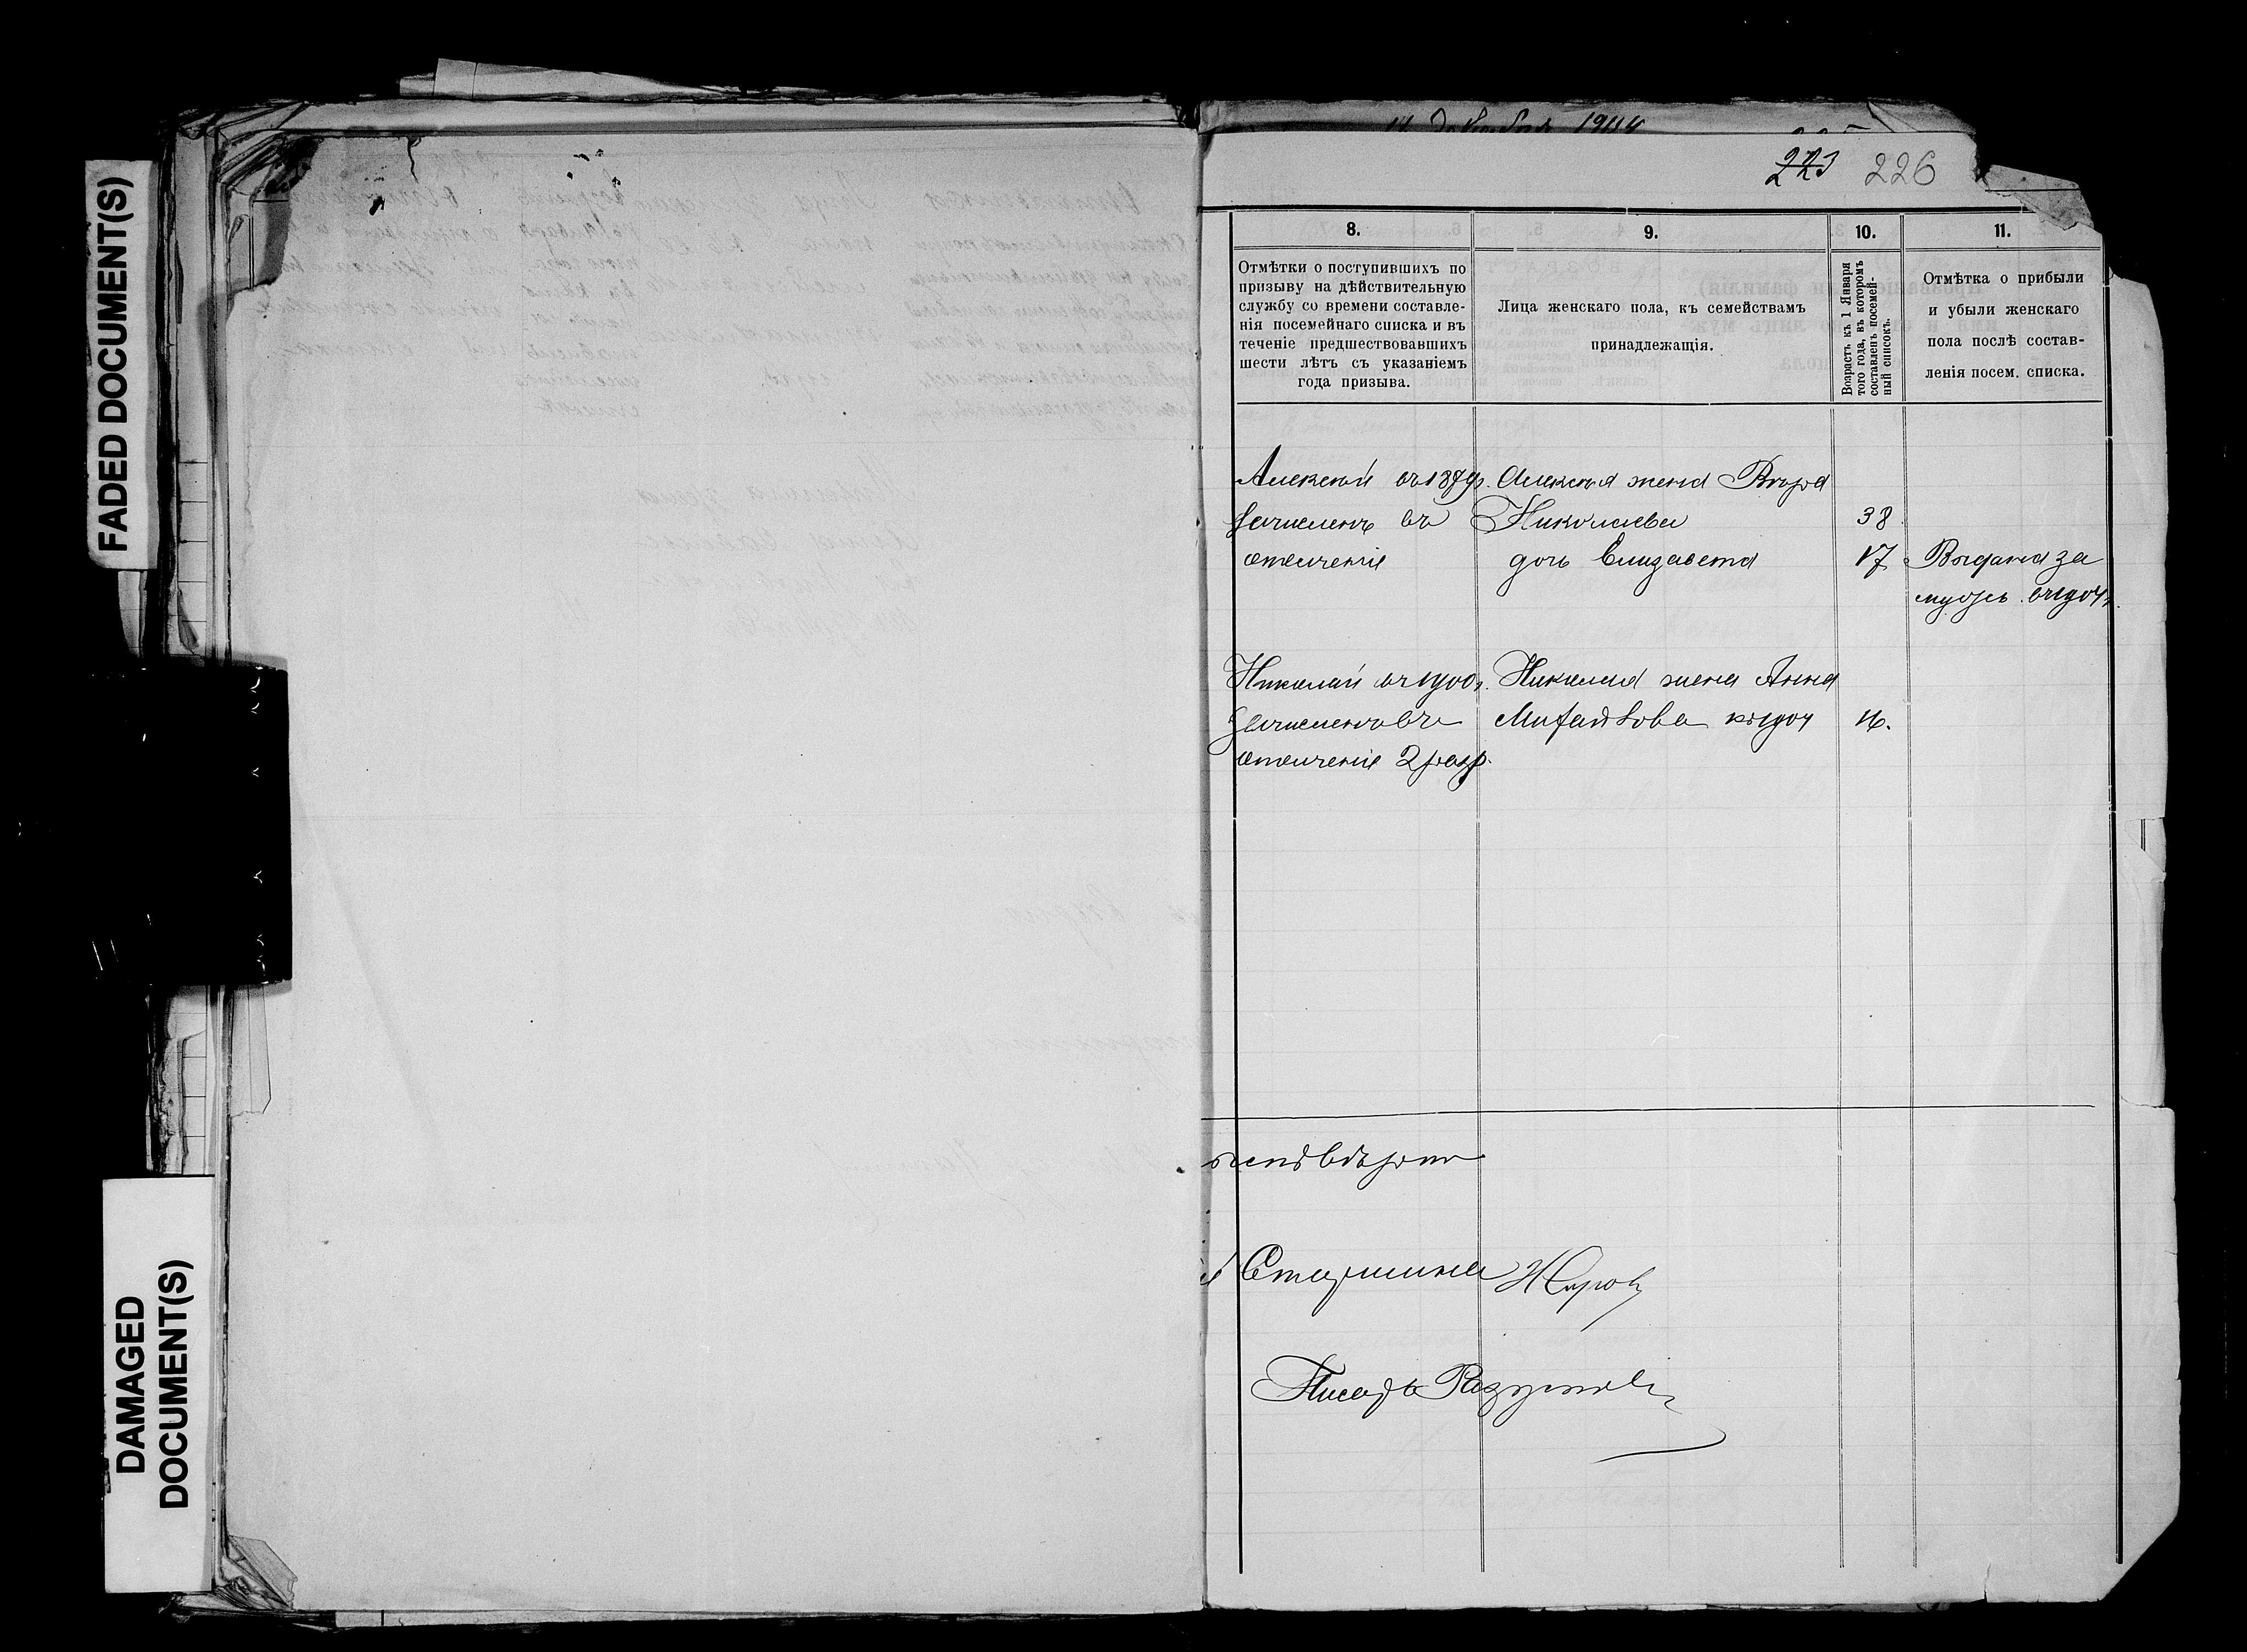 FADED DOCUMENT(S)
DAMAGED
DOCUMENT(S)
223 226
8.
9.
10.
11.
Отмѣтки о поступившихъ по
призыву на дѣйствительную
службу со времени составле-
нія посемейнаго списка и въ
теченіе предшествовавшихъ
шести лѣтъ съ указаніемъ
года призыва.
Лица женскаго пола, къ семействамъ
принадлежащія.
Возрастъ къ 1 Января
того года, въ которомъ
составленъ посемей-
ный списокъ.
Отмѣтка о прибыли
и убыли женскаго
пола послѣ состав-
ленія посем. списка.
Алексѣй въ 1879г. Алексѣя жена Вѣра
Зачисленъ въ Николаева 38
ополченіе дочь Елизавета 17 Выдана за
мужъ въ 1904г.
Николай въ 1900г. Николая жена Анна
Зачисленъ въ Михайлова 16.
ополченіе 2 разр.
Старшина
Писарь